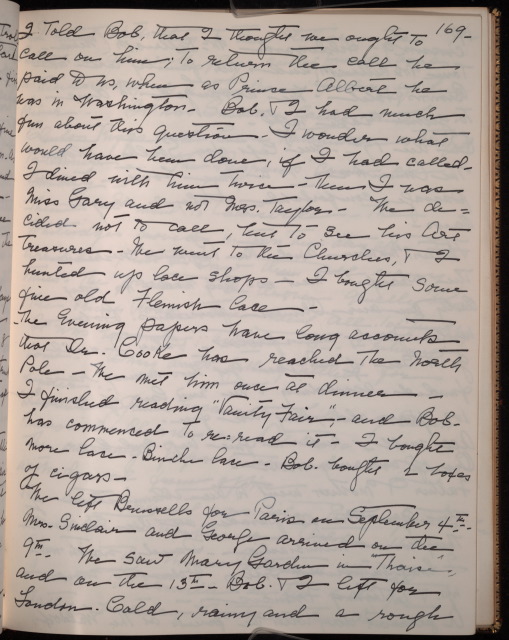 169-
I Told Bob, that I thought we ought to
call on him; to return the call he
paid to us, when as Prince Albert he
was in Washington - Bob. & I had much
fun about this question - I wonder what
would have been done, if I had called -
I dined with him twice - then I was
Miss Gary and not Mrs. Taylor - We de=
cided not to call, but to see his Art
treasures - We went to the Churches, & I
hunted up lace shops - I bought some
fine old Flemish lace -
The Evening papers have long accounts
that Dr. Cooke has reached the North
Pole - We met him once at dinner -
I finished reading "Vanity Fair", and Bob.
has commenced to re=read it - I bought
more lace - Binche lace - Bob. bought 2 boxes
of cigars -
We left Brussells for Paris on September 4th -
Mrs. Sinclair and George arrived on the
9th - We saw Mary Garden in "Thaïs",
and on the 13th - Bob. & I left for
London. Cold, rainy and a rough